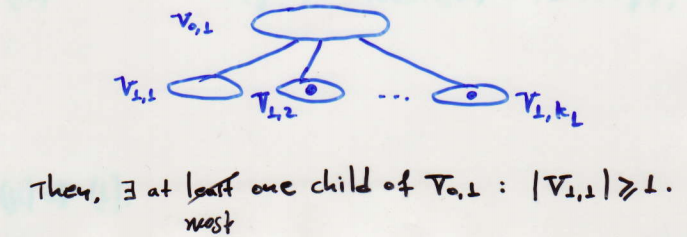 V₀,₁
V₁,₁ V₁,₂ ... V₁,ₖ₁
Then, ∃ at least one child of V₀,₁ : |V₁,₁| ≥ 1.
most